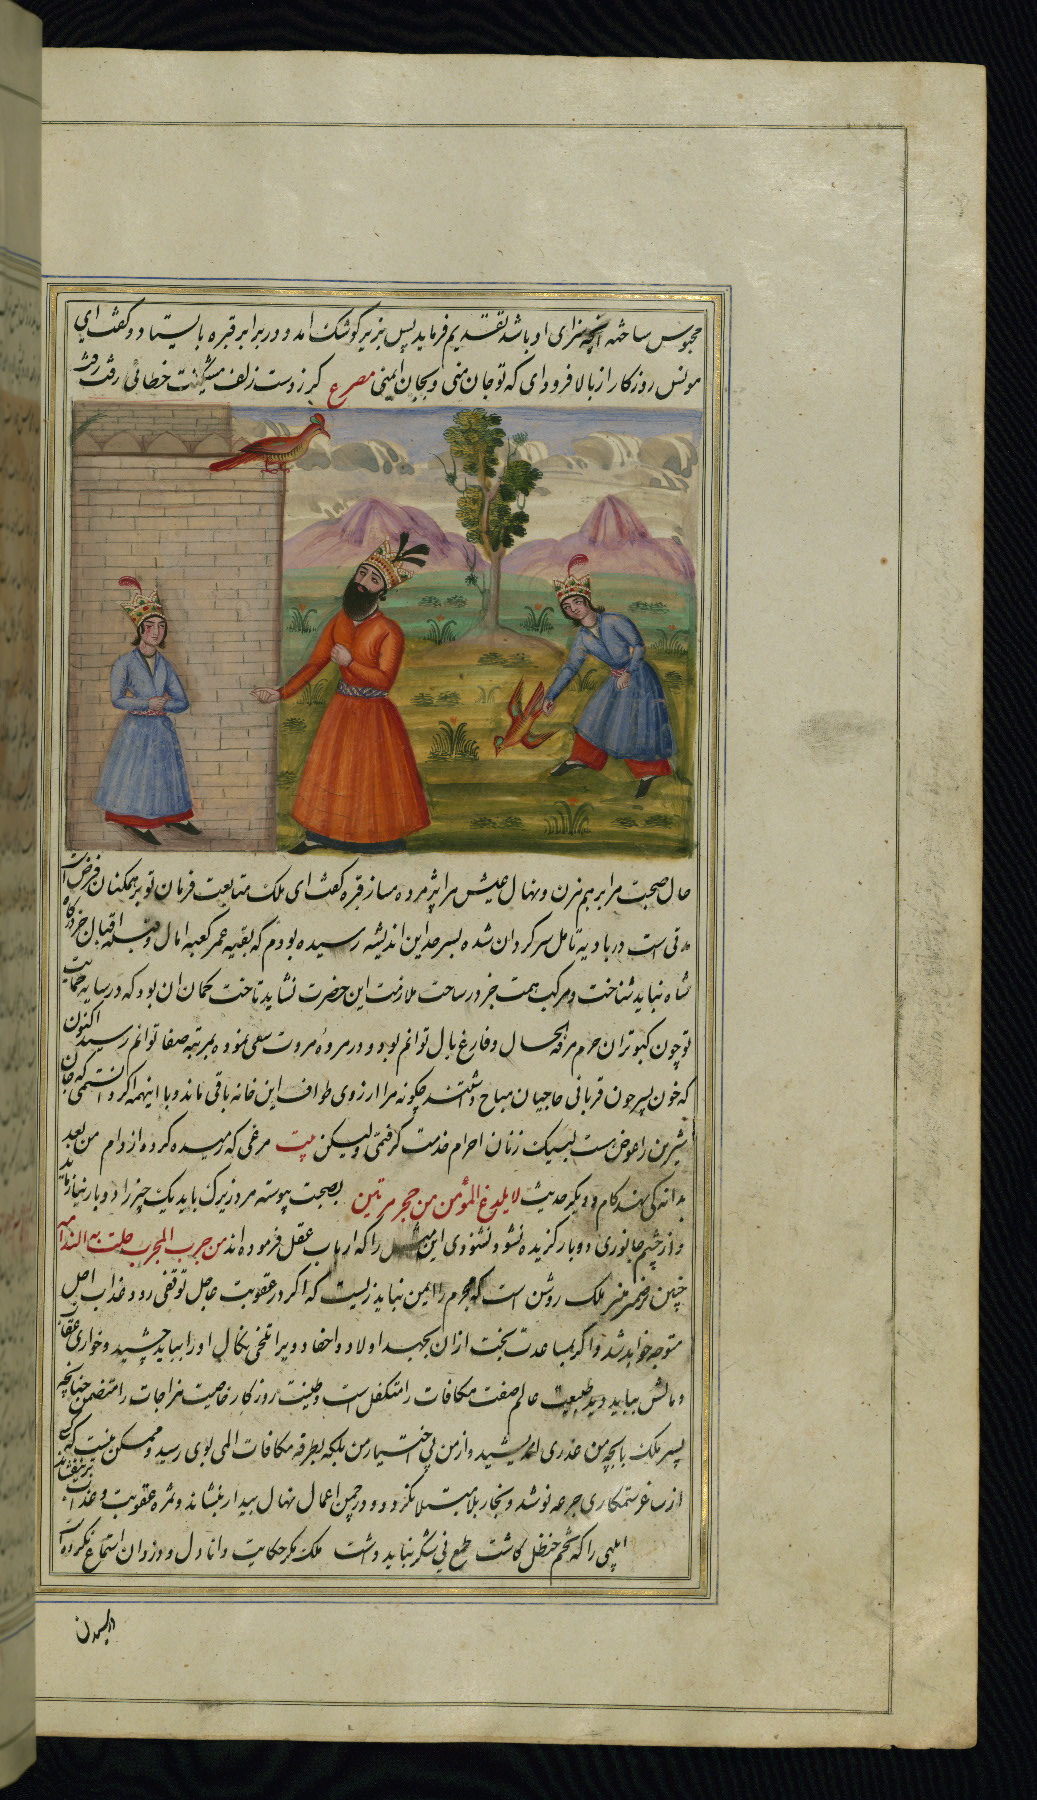 محبوس ساخته آنچه سزای او باشد بتقدیم فرماید پس بزیر کوشک امد و در برابر قبره بایستاد و کفت ای
مونس روزکار از بالا فرود ای که تو جان منی و بجان ایمنی مصرع کر ز دست زلف مشکینت خطائی رفت رفت
حال صحبت مرا برهم مزن و نهال عیش مرا پژمرده مساز قبره کفت ای ملک متابعت فرمان تو بر همکنان فرض است
مدتی است در بادیه تامل سرکردان شده بسر حد این اندیشه رسیده بودم که بقیه عمر کعبه امال و قبله اقبال جز درکاه
شاه نباید شناخت و مرکب همت جز در ساحت ملازمت این حضرت نشاید تاخت کمان ان بود که در سایه حمایت
تو چون کبوتران حرم مرفه الحال و فارغ بال توانم بود و در مروهٔ مروت سعی نموده بمرتبه صفا توانم رسید اکنون
که خون پسر چون قربانی حاجیان مباح داشتند چکونه مرا ارزوی طواف این خانه باقی ماند و با اینهمه اکر دانستمی که جان
شیرین را عوض هست لبیک زنان احرام خدمت کرفتمی ولیکن بیت مرغی که رمیده کردد از دام من بعد
بدانه کی نهد کام و دیکر حدیث لا یلدغ المؤمن من جحر مرتین بصحت پیوسته مرد زیرک باید یک چیز را دوبار نیازماید
و از چشم جانوری دوبار کزیده نشود نشنوی این مثل را که ارباب عقل فرموده اند من جرب المجرب حلت به الندامه
چنین بر ضمیر منیر ملک روشن است که مجرم را ایمن نباید زیست که اکر در عقوبت عاجل توقفی رود عذاب اجل
متوجه خواهد شد و اکر بمساعدت بخت ازان بجهد اولاد و احفاد ویرا تلخی نکال او را بباید چشید و خواری عقاب
و مالش بباید دید طبیعت عالم صفت مکافات را متکفل است و طینت روزکار خاصیت مزاجات را متضمن چنانچه
پسر ملک با بچه من غدری اندیشید و از من بی اختیار من بلکه بطرفه مکافات المی بوی رسید و ممکن نیست که کسی
از ساغر ستمکاری جرعه نوشد و بخار بلا مبتلا نکردد و در چمن اعمال نهال بیداد نشاند و ثمره عقوبت و عذاب بر نیفشاند
ابلهی را که تخم حنظل کاشت طمع نی شکر نباید داشت ملک مکر حکایت دانادل و دزدان استماع نکرده است